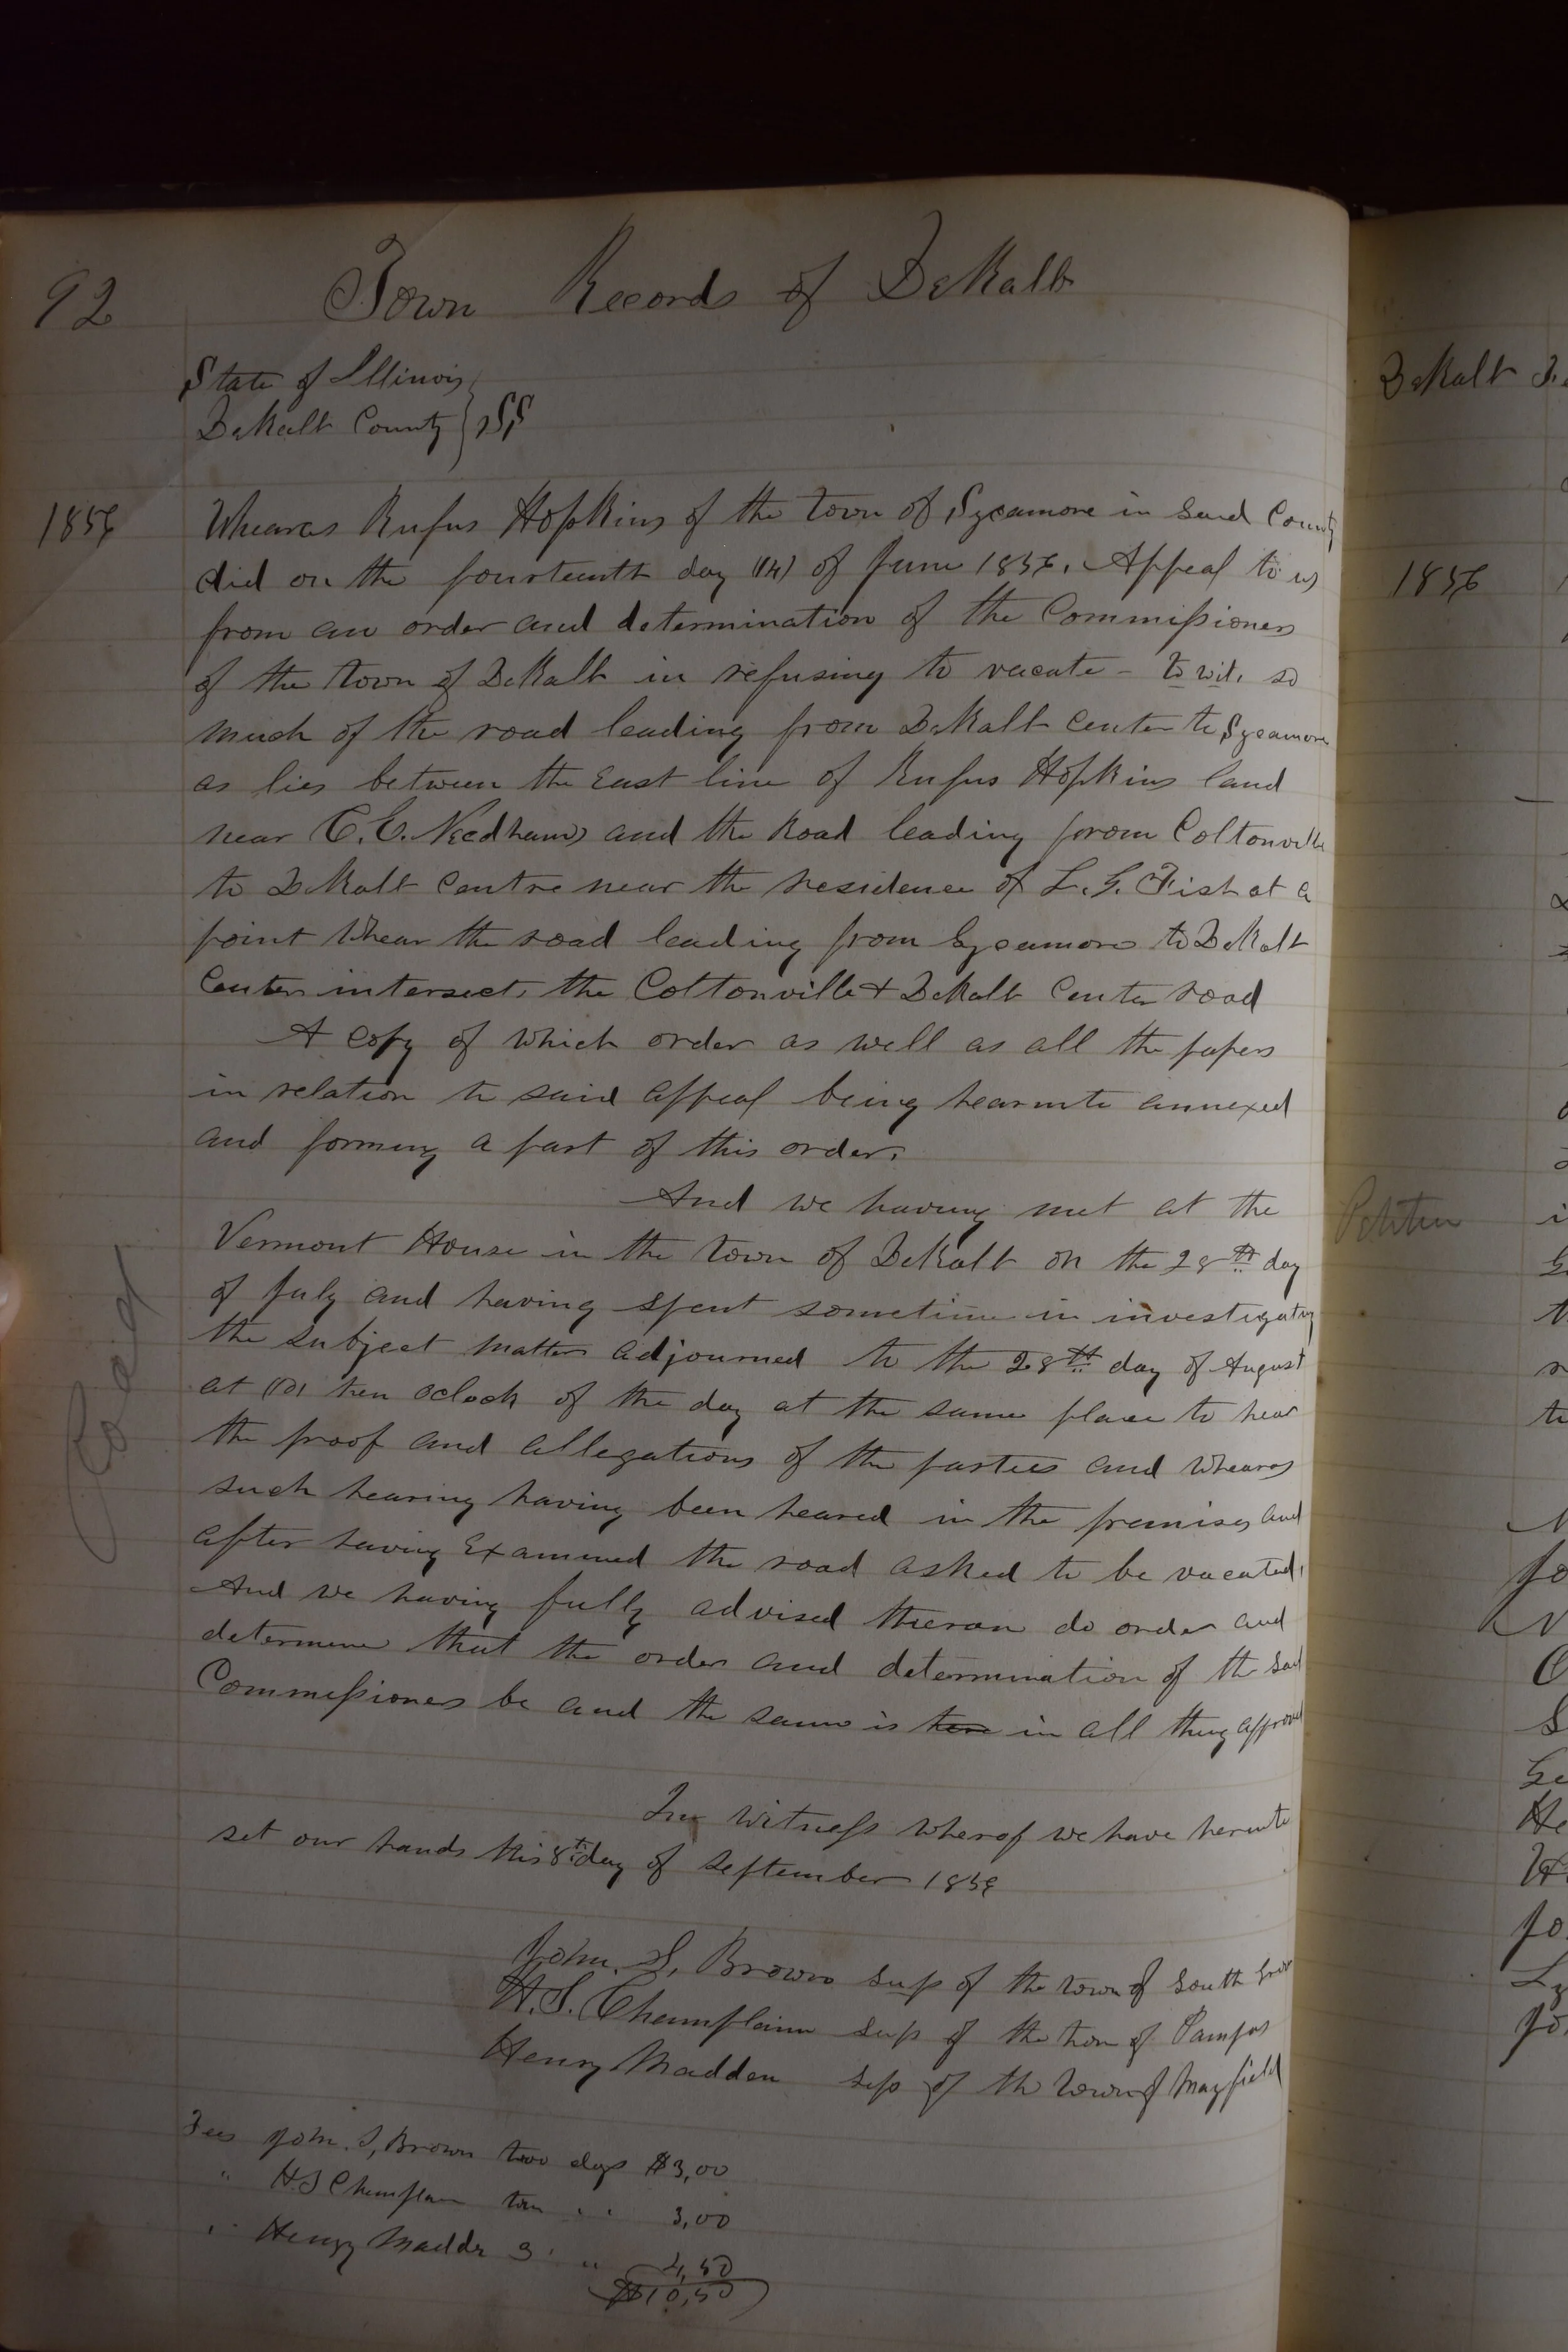 92
Town Records of DeKalb
State of Illinois
DeKalb County } SS
1856
Wheares Rufus Hopkins of the town of Sycamore in said County
did on the fourteenth day (14) of June 1856. Appeal to us
from an order and determination of the Commissioners
of the town of DeKalb in refusing to vacate - to wit, so
much of the road leading from DeKalb Center to Sycamore
as lies between the East line of Rufus Hopkins land
near C. E. Needhams and the Road leading from Coltonville
to DeKalb Centre near the residence of L. G. Fish at a
point Whear the road leading from Sycamore to DeKalb
Center intersects the Coltonville & DeKalb Center road
A copy of which order as well as all the papers
in relation to said appeal being hearunto annexed
and forming a part of this order.
And we having met at the
Vermont House in the town of DeKalb on the 28th day
of July and having spent sometime in investigating
the subject matter adjourned to the 28th day of August
at (10) ten oclock of the day at the same place to hear
the proof and allegations of the parties and Wheares
such hearing having been heared in the premises and
after having Examined the road asked to be vacated,
And we having fully advised theron do order and
determine that the order and determination of the said
Commissioners be and the same is here in all thing approved
In Witness wherof we have herunto
set our hands this 8th day of September 1856
Road
John. S. Brown sup of the town of South Grove
H. S. Champlain sup of the town of Pampas
Henry Madden sup of the Town of Mayfield
Fees John. S, Brown two days $3,00
" H. S Champlain two " " 3,00
" Henry Madden 3 " " 4,50
$10,50
DeKalb
1856
Petition